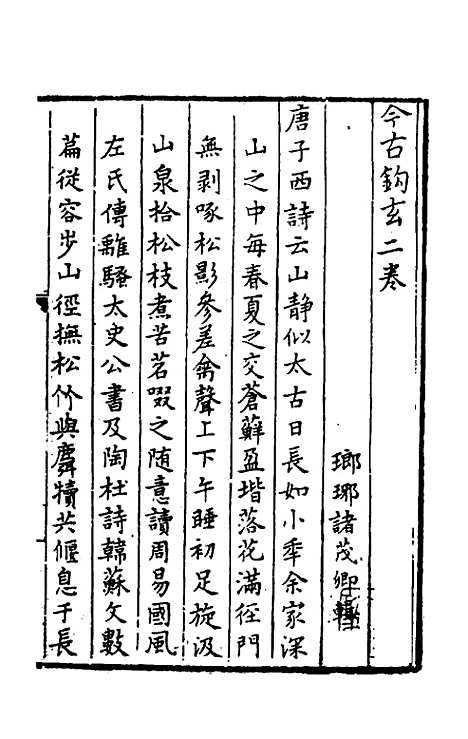 今古鈎玄二卷
瑯琊諸茂卿輯
唐子西詩云山靜似太古日長如小秊余家深
山之中每春夏之交蒼蘚盈堦落花滿徑門
無剥啄松影參差禽聲上下午睡初足旋汲
山泉拾松枝煮苦茗啜之随意讀周易國風
左氏傳離騷太史公書及陶杜詩韓蘇文數
篇從容步山徑撫松竹與麛犢共偃息于長